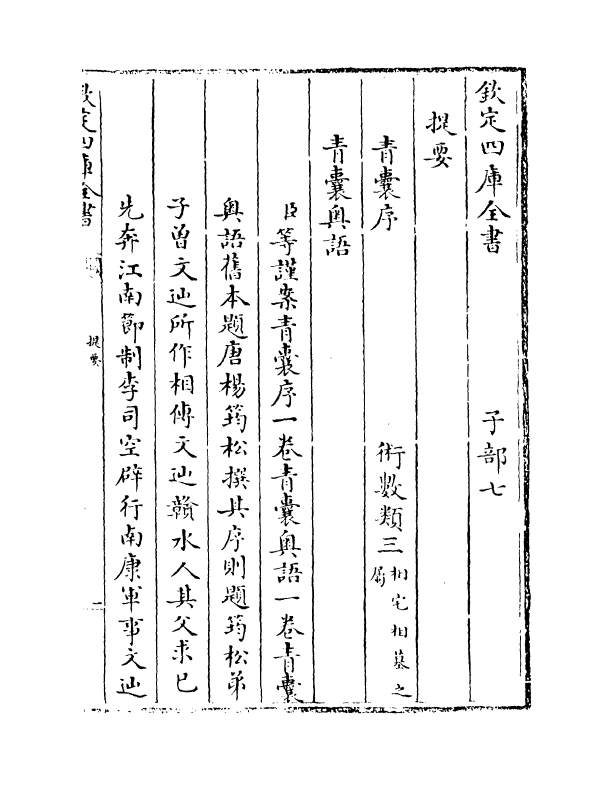 欽定四庫全書　子部七
提要
青囊序　術數類三相宅相墓之屬
青囊奥語
臣等謹案青囊序一卷青囊奥語一卷青囊
奥語舊本題唐楊筠松撰其序則題筠松弟
子曾文辿所作相傳文辿贑水人其父求已
先奔江南節制李司空辟行南康軍事文辿
欽定四庫全書
提要
一